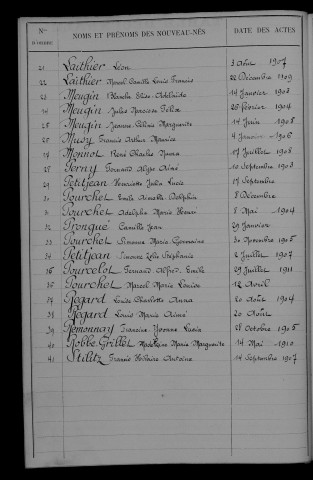 Nos D'ORDRE NOMS ET PRÉNOMS DES NOUVEAU-NÉS DATE DES ACTES
21 Laithier Léon 3 Août 1907
22 Laithier Marcel Camille Louis Francis 22 Décembre 1909
23 Meugin Blanche Elise Adélaïde 14 Janvier 1903
24 Meugin Jules Narcisse Félix 26 Février 1904
25 Meugin Jeanne Célinie Marguerite 14 Juin 1908
26 Francis Arthur Maurice 4 Janvier 1906
27 Monnot René Charles 17 Juillet 1908
28 Perny Fernand Aimé 10 Septembre 1903
29 Petitjean Henriette Julia Lucie 17 Septembre
30 Pourchet Emile Aimable Delphin 8 Décembre
31 Pourchet Adolphe Marie Henri 8 Mai 1904
32 Prongué Camille Jean 29 Janvier
33 Pourchet Simonne Marie Germaine 30 Novembre 1905
34 Petitjean Simonne Zélie Stéphanie 2 Juillet 1907
35 Pourcelot Fernand Alfred Emile 29 Juillet 1911
36 Pourchet Marcel Marie Louis 12 Avril
37 Regard Louise Charlotte Anna 20 Août 1904
38 Regard Louis Marie Aimé 20 Août
39 Remonnay Francine Yvonne Lucia 28 Octobre 1905
40 Robbe-Grillet Madeleine Marie Marguerite 14 Mai 1910
41 Stilitz Francis Antoine 14 Septembre 1907